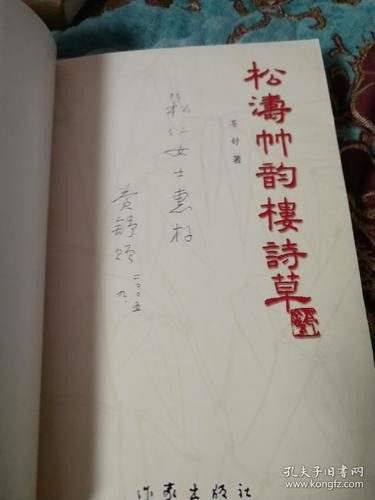 松濤竹韵樓詩草
著
松仁女士惠存
黄舒
二〇〇五
九.
作家出版社
孔夫子旧书网
www.kongfz.com